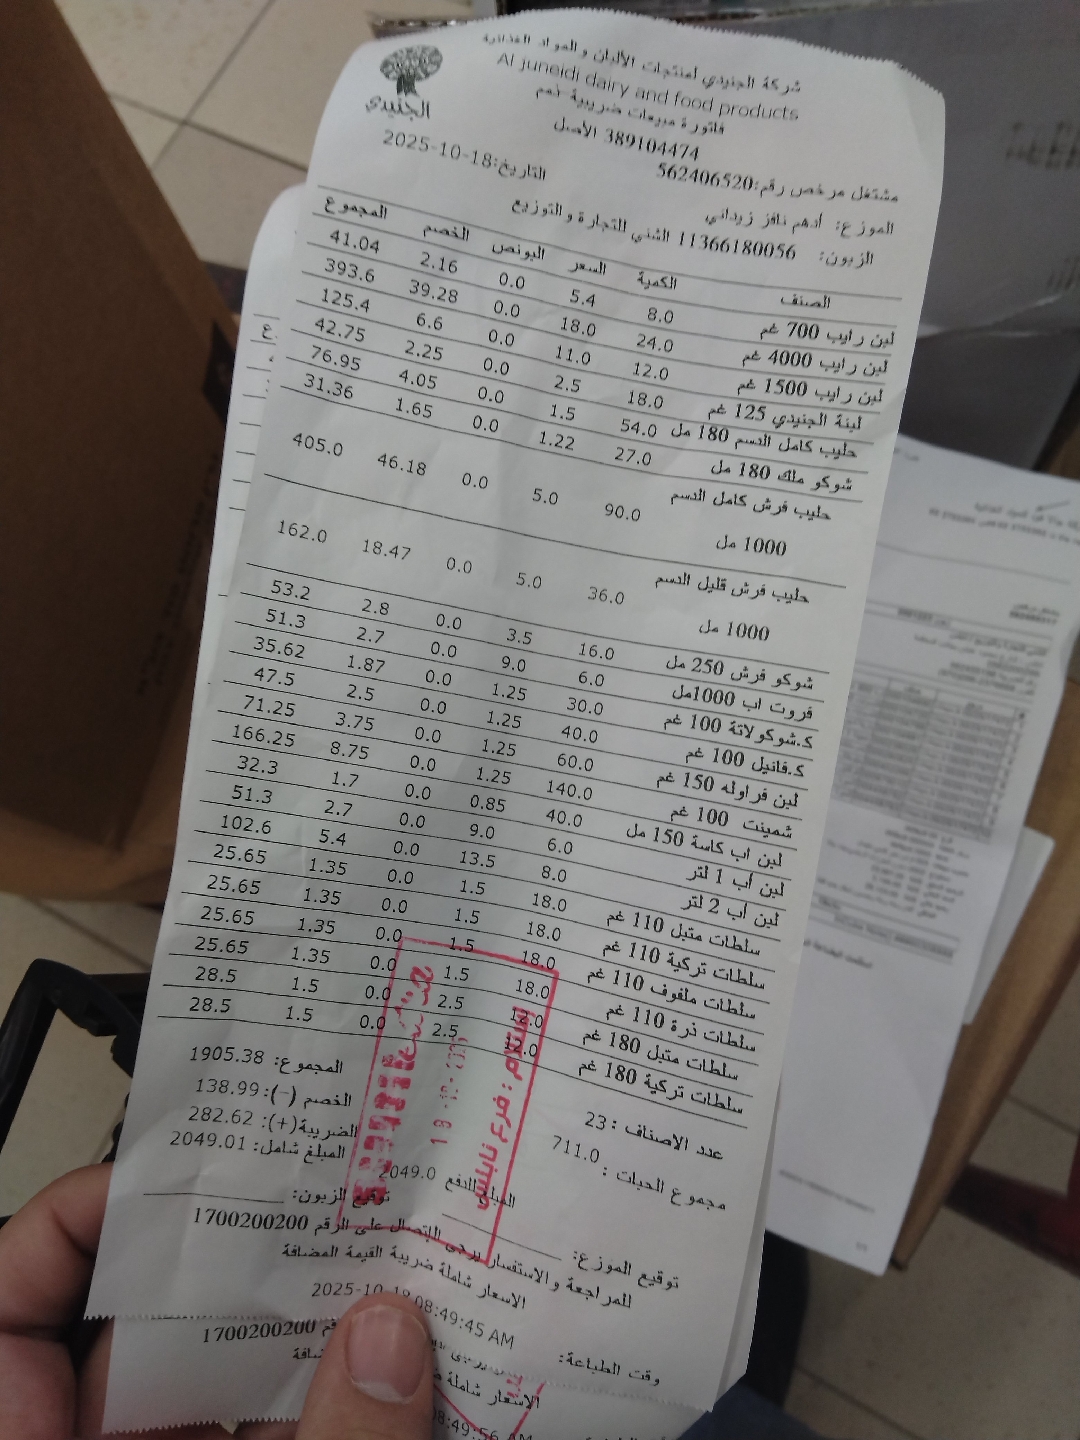 شركة الجنيدي لمنتجات الألبان والمواد الغذائية
Al juneidi dairy and food products
الجنيدي
فاتورة مبيعات ضريبية-ذمم
389104474 الأصل
مشتغل مرخص رقم:562406520 التاريخ:2025-10-18
الموزع: أدهم نافز زيداني
الزبون: 11366180056 الشني للتجارة والتوزيع
الصنف الكمية السعر البونص الخصم المجموع
لبن رايب 700 غم 8.0 5.4 0.0 2.16 41.04
لبن رايب 4000 غم 24.0 18.0 0.0 39.28 393.6
لبن رايب 1500 غم 12.0 11.0 0.0 6.6 125.4
لبنة الجنيدي 125 غم 18.0 2.5 0.0 2.25 42.75
حليب كامل الدسم 180 مل 54.0 1.5 0.0 4.05 76.95
شوكو ملك 180 مل 27.0 1.22 0.0 1.65 31.36
حليب فرش كامل الدسم 90.0 5.0 0.0 46.18 405.0
1000 مل
حليب فرش قليل الدسم 36.0 5.0 0.0 18.47 162.0
1000 مل
شوكو فرش 250 مل 16.0 3.5 0.0 2.8 53.2
فروت اب 1000مل 6.0 9.0 0.0 2.7 51.3
ك.شوكولاتة 100 غم 30.0 1.25 0.0 1.87 35.62
ك.فانيل 100 غم 40.0 1.25 0.0 2.5 47.5
لبن فراوله 150 غم 60.0 1.25 0.0 3.75 71.25
شمينت 100 غم 140.0 1.25 0.0 8.75 166.25
لبن اب كاسة 150 مل 40.0 0.85 0.0 1.7 32.3
لبن أب 1 لتر 6.0 9.0 0.0 2.7 51.3
لبن أب 2 لتر 8.0 13.5 0.0 5.4 102.6
سلطات متبل 110 غم 18.0 1.5 0.0 1.35 25.65
سلطات تركية 110 غم 18.0 1.5 0.0 1.35 25.65
سلطات ملفوف 110 غم 18.0 1.5 0.0 1.35 25.65
سلطات ذرة 110 غم 18.0 1.5 0.0 1.35 25.65
سلطات متبل 180 غم 12.0 2.5 0.0 1.5 28.5
سلطات تركية 180 غم 12.0 2.5 0.0 1.5 28.5
عدد الاصناف : 23 المجموع: 1905.38
مجموع الحبات : 711.0 الخصم (-): 138.99
الضريبة(+): 282.62
المبلغ شامل: 2049.01
المبلغ للدفع 2049.0
توقيع الزبون:
توقيع الموزع:
للمراجعة والاستفسار يرجى الإتصال على الرقم 1700200200
الاسعار شاملة ضريبة القيمة المضافة
وقت الطباعة: 2025-10-18 08:49:45 AM
فرع نابلس
1700200200
الاسعار شاملة
08:49:56 AM